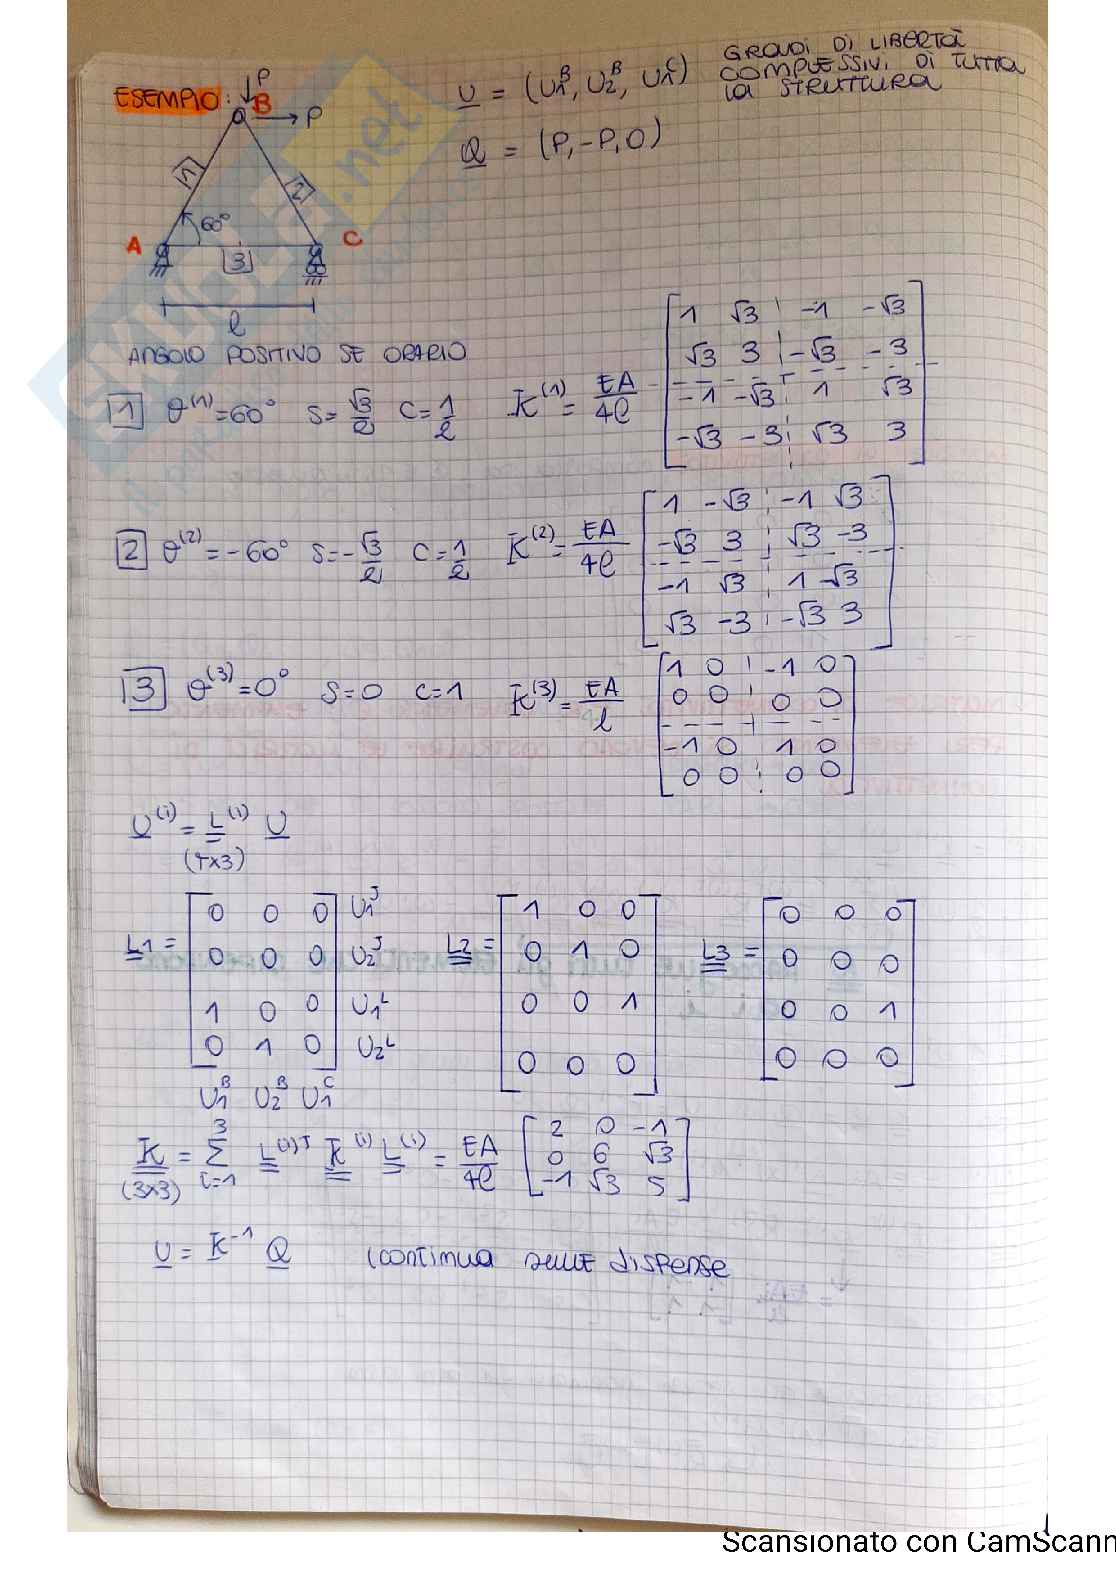 ESEMPIO:
P
B
P
U = (U1^B, U2^B, U1^C)
GRADI DI LIBERTÀ
COMPLESSIVI DI TUTTA
LA STRUTTURA
Q = (P, -P, 0)
1
2
60°
A
C
3
l
ANGOLO POSITIVO SE ORARIO
1 θ^(1) = 60° S = √3/2 C = 1/2 K^(1) = EA/4l
1 √3 -1 -√3
√3 3 -√3 -3
-1 -√3 1 √3
-√3 -3 √3 3
2 θ^(2) = -60° S = -√3/2 C = 1/2 K^(2) = EA/4l
1 -√3 -1 √3
-√3 3 √3 -3
-1 √3 1 -√3
√3 -3 -√3 3
3 θ^(3) = 0° S = 0 C = 1 K^(3) = EA/l
1 0 -1 0
0 0 0 0
-1 0 1 0
0 0 0 0
U^(i) = L^(i) U
(4x3)
L1 =
0 0 0 U1^J
0 0 0 U2^J
1 0 0 U1^L
0 1 0 U2^L
U1^B U2^B U1^C
L2 =
1 0 0
0 1 0
0 0 1
0 0 0
L3 =
0 0 0
0 0 0
0 0 1
0 0 0
K = Σ L^(i)T K^(i) L^(i) = EA/4l
3
i=1
(3x3)
2 0 -1
0 6 √3
-1 √3 5
U = K^-1 Q (continua sulle dispense
Scansionato con CamScann